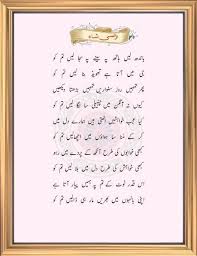 وصی شاہ
باندھ لیں ہاتھ پہ سینے پہ سجا لیں تم کو
جی میں آتا ہے تعویذ بنا لیں تم کو
پھر تمہیں روز سنواریں تمہیں بڑھتا دیکھیں
کیوں نہ آنگن میں چنبیلی سا لگا لیں تم کو
کیا عجب خواہشیں اٹھتی ہیں ہمارے دل میں
کر کے منا سا ہواؤں میں اچھالیں تم کو
کبھی خوابوں کی طرح آنکھ کے پردے میں رہو
کبھی خواہش کی طرح دل میں بلا لیں تم کو
اس قدر ٹوٹ کے تم پہ ہمیں پیار آتا ہے
اپنی بانہوں میں بھریں مار ہی ڈالیں تم کو